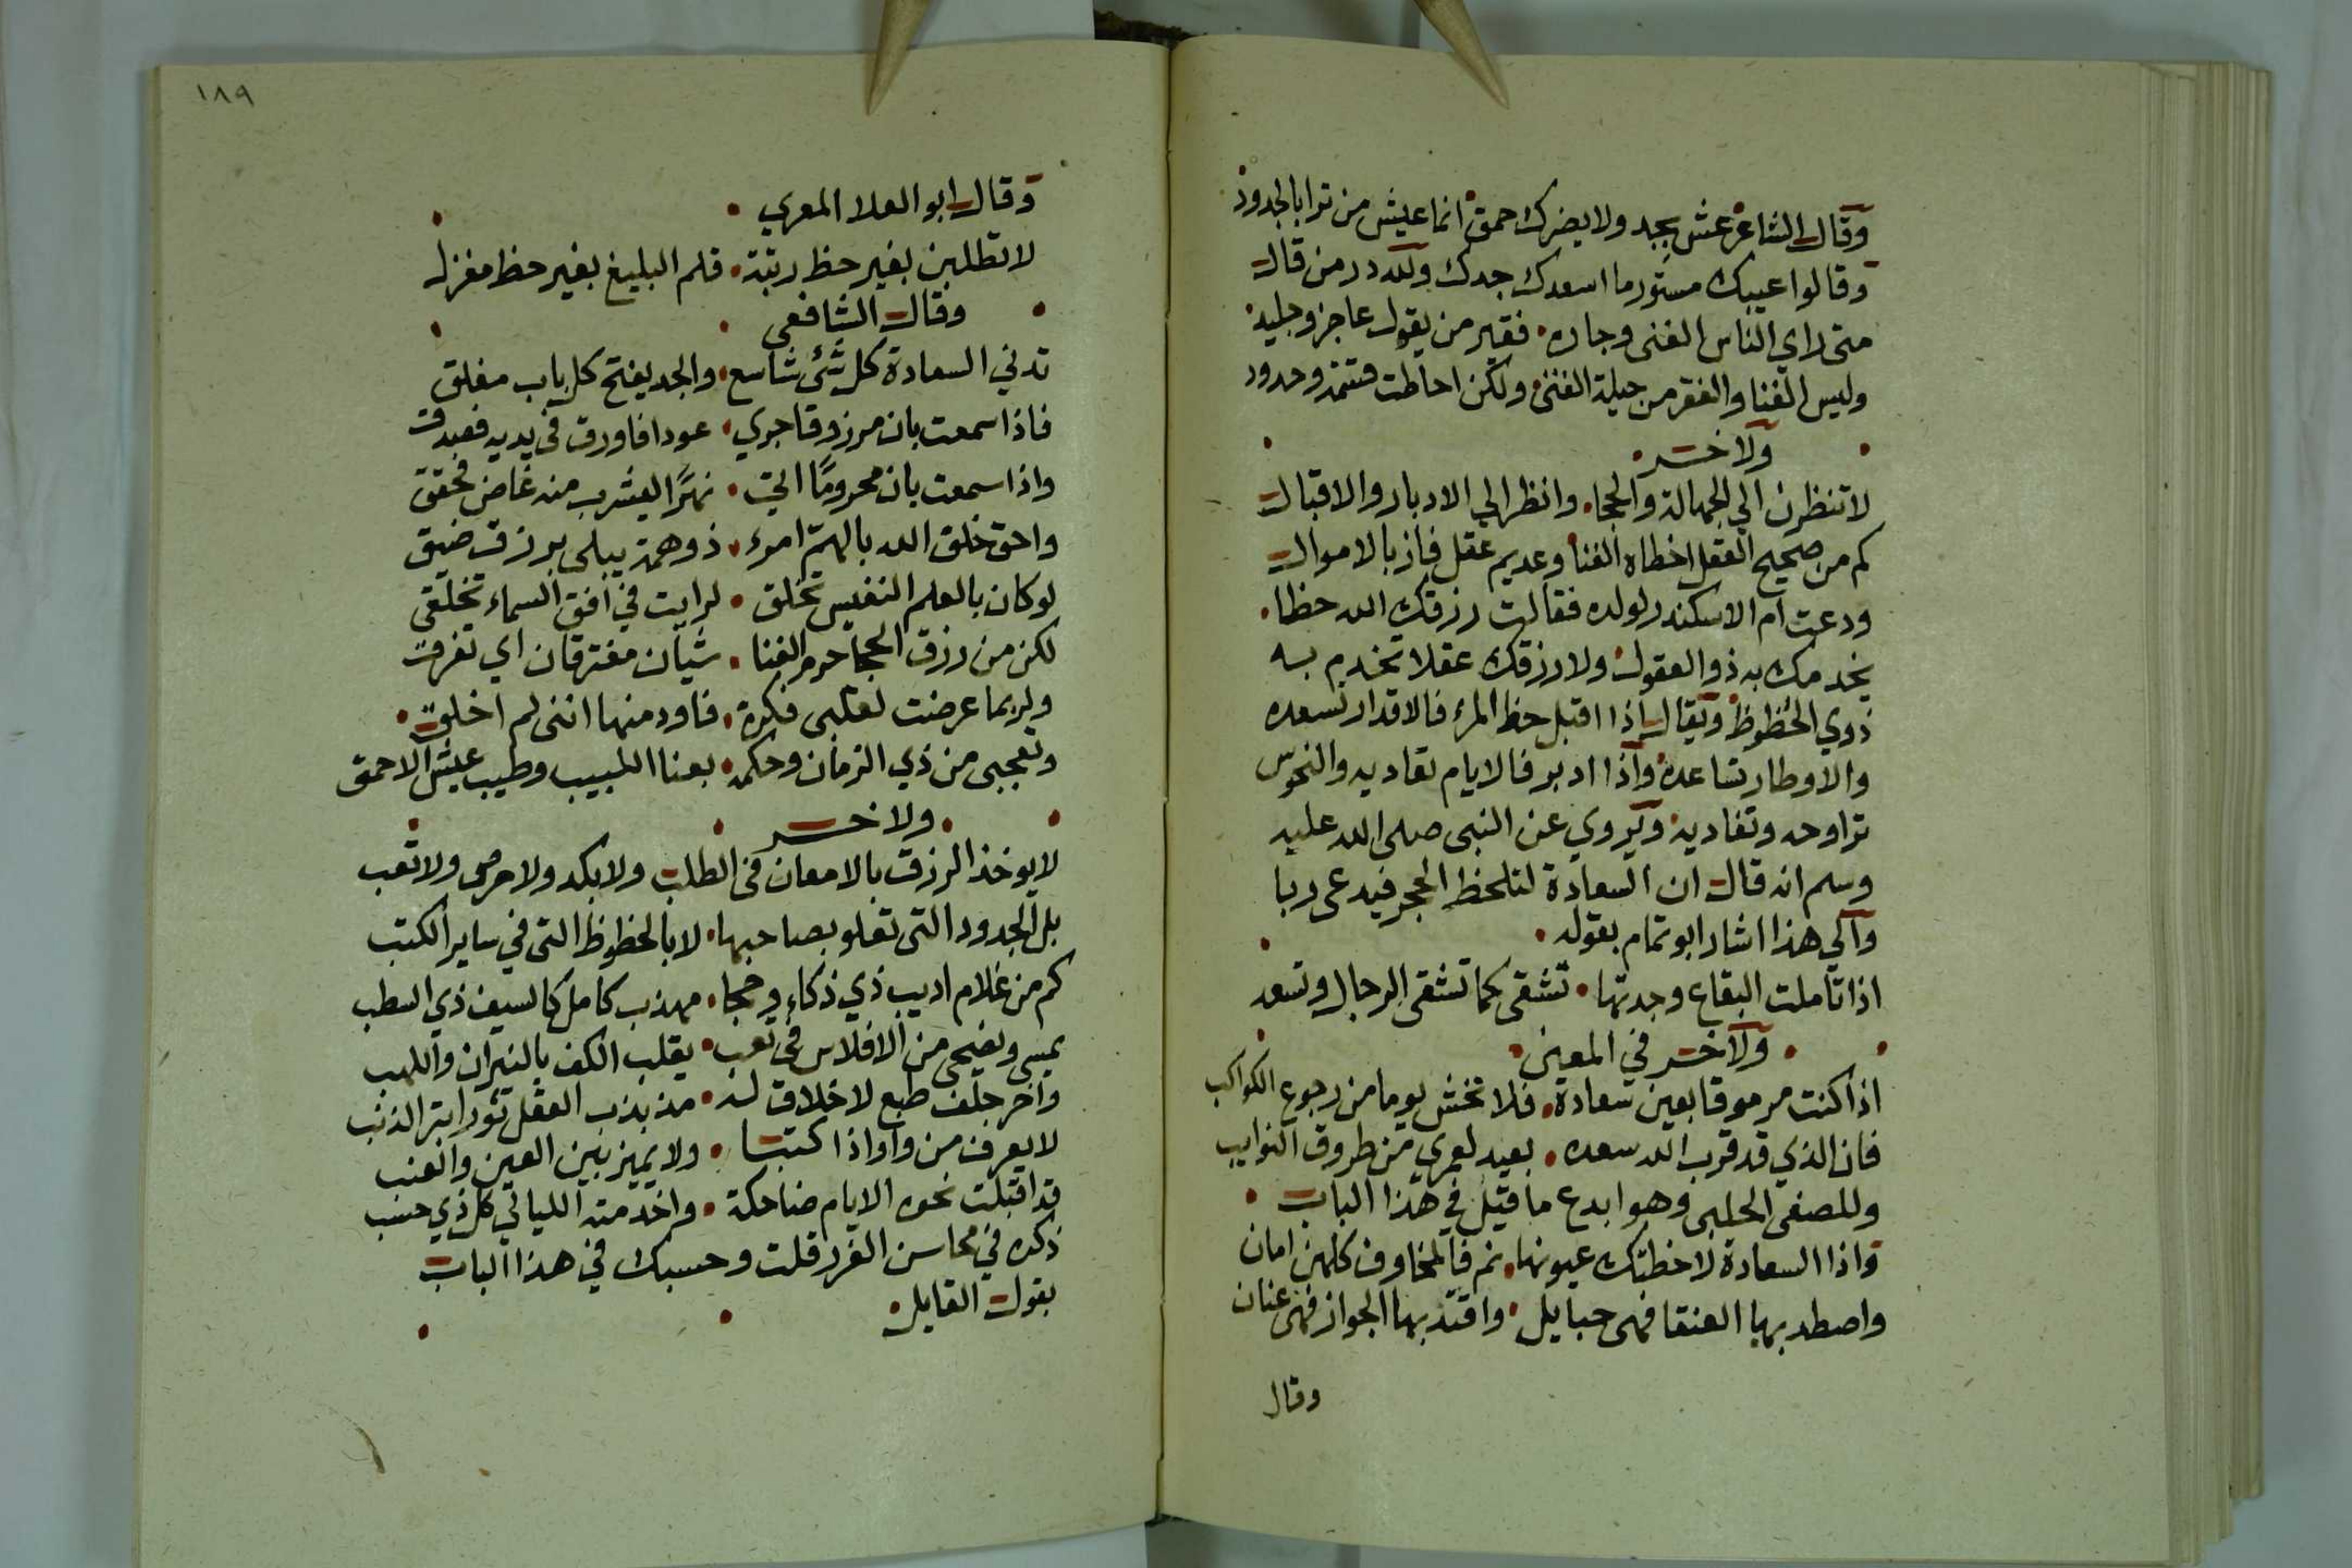 وقال الشاعر عش بجد ولا يضرك حمق انما عيش من ترا بالجدود
وقالوا عيبك مستور ما اسعدك جدك ولله در من قال
متى راي الناس الغنى وجاره فقير من يقول عاجز وجليد
وليس الغنا والفقر من حيلة الفتى ولكن احاطت قسمة وحدود
ولاخر
لا تنظرن الي الجهالة والحجا وانظر الي الادبار والاقبال
كم من صحيح العقل اخطاه الغنا وعديم عقل فاز بالاموال
ودعت ام الاسكندر لولده فقالت رزقك الله حظا
يخدمك به ذو العقول ولا رزقك عقلا تخدم به
ذوي الحظوظ ويقال اذا اقبل حظ المرء فالاقدار تسعده
والاوطار تساعده واذا ادبر فالايام تعاديه والنحوس
تراوحه وتغاديه ويروي عن النبي صلى الله عليه
وسلم انه قال ان السعادة لتلحظ الحجر فيدعى ربا
والي هذا اشار ابو تمام بقوله
اذا تاملت البقاع وجدتها تشقى كما تشقى الرجال وتسعد
ولاخر في المعنى
اذا كنت مرموقا بعين سعادة فلا تخش يوما من رجوع الكواكب
فان الذي قد قرب الله سعده بعيد لعمري من طروق النوايب
وللصفي الحلبي وهو ابدع ما قيل في هذا الباب
واذا السعادة لاحظتك عيونها نم فالمخاوف كلهن امان
واصطد بها العنقا فهى حبايل واقتد بها الجواز فهى عنان
وقال
١٨٩
وقال ابو العلا المعري
لا تطلبن بغير حظ رتبة قلم البليغ بغير حظ مغزل
وقال الشافعي
تدني السعادة كل شئ شاسع والجد يفتح كل باب مغلق
فاذا سمعت بان مرزوقا جري عودا فاورق في يديه فصدق
واذا سمعت بان محروما اتى نهرا ليشرب منه غاض فحقق
واحق خلق الله بالهم امرء ذو همة يبلى برزق ضيق
لو كان بالعلم النفيس تخلق لرايت في افق السماء تخلقي
لكن من رزق الحجا حرم الغنا شيان مفترقان اي تفرق
ولربما عرضت لقلبي فكرة فاود منها انني لم اخلق
وتعجبي من ذي الزمان وحكمه بعنا اللبيب وطيب عيش الاحمق
ولاخر
لا يوخذ الرزق بالامعان في الطلب ولا بكد ولا حرص ولا تعب
بل الجدود التي تعلو بصاحبها لا بالحظوظ التي في ساير الكتب
كم من غلام اديب ذي ذكاء وحجا مهذب كامل كالسيف ذي السطب
يمسي ويضحي من الافلاس في تعب يقلب الكف بالنيران واللهب
واخر جلف طبع لا خلاق له مذبذب العقل ثور ابتر الذنب
لا يعرف من واواذا كتبا ولا يميز بين العين والعنب
قد اقبلت نحوه الايام ضاحكة واخدمته الليالي كل ذي حسب
ذكره في محاسن الغرر قلت وحسبك في هذا الباب
بقول القايل